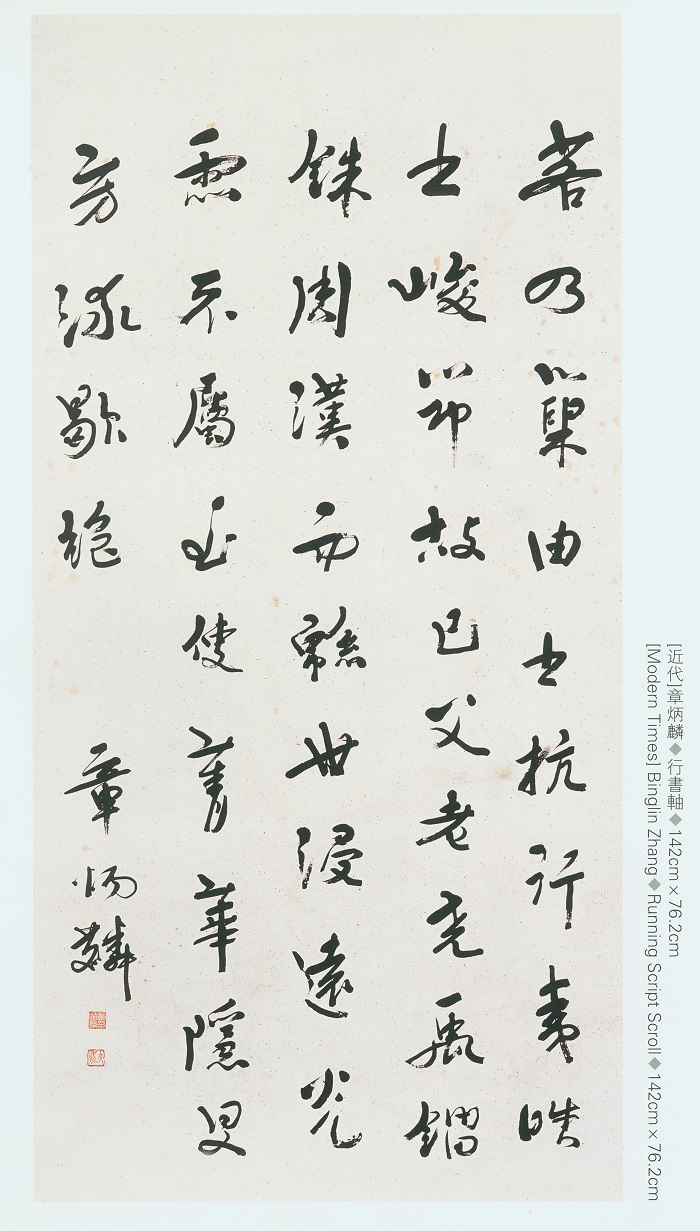 若乃巢由之抗行夷皓
之峻節故已父老堯禹錙
銖周漢而緜世浸遠光
靈不屬至使菁華隱沒
芳流歇絕
章炳麟
[近代]章炳麟◆行書軸◆142cm×76.2cm
[Modern Times] Binglin Zhang◆Running Script Scroll◆142cm×76.2cm